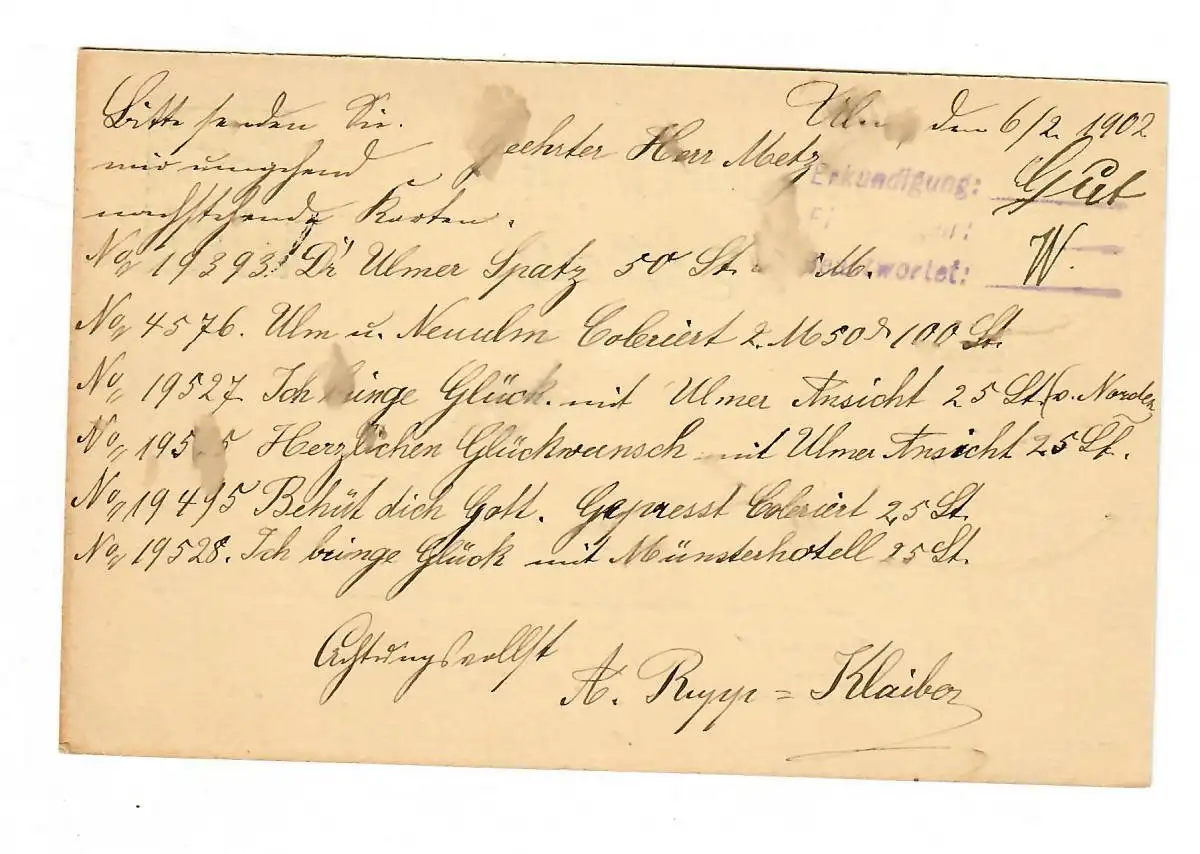 Ulm, den 6/2. 1902
Geehrter Herr Metz
Bitte senden Sie.
mir umgehend
nachstehende Karten.
Erkundigung: Gut
Beantwortet: W.
No 19393. D'r Ulmer Spatz 50 St. M.
No 4576. Ulm u. Neuulm Coleriert 2. M 50 100 St.
No 19527 Ich bringe Glück. mit Ulmer Ansicht 25 St. (v. Norden)
No Herzlichen Glückwunsch mit Ulmer Ansicht 25 St.
No 19495 Behüt dich Gott. Gepresst Coleriert 25 St.
No 19528. Ich bringe Glück mit Münsterhotell 25 St.
Achtungsvollst
A. Rupp = Klaiber